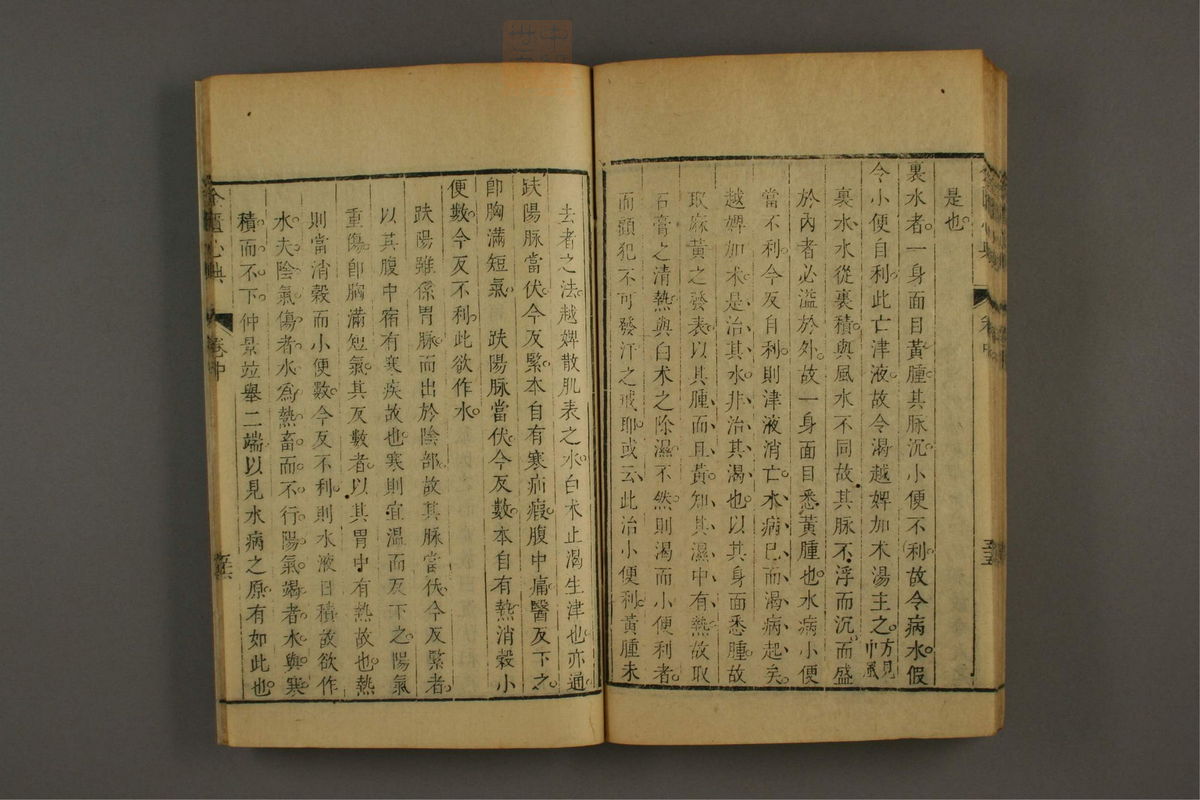 是也
裏水者一身面目黃腫其脉沉小便不利故令病水假
令小便自利此亡津液故令渴越婢加术湯主之方見中風
裏水水從裏積與風水不同故其脉不浮而沉而盛
於內者必溢於外故一身面目悉黃腫也水病小便
當不利今反自利則津液消亡水病巳而渴病起矣
越婢加术是治其水非治其渴也以其身面悉腫故
取麻黃之發表以其腫而且黃知其濕中有熱故取
石膏之清熱與白术之除濕不然則渴而小便利者
而顧犯不可發汗之戒耶或云此治小便利黃腫未
去者之法越婢散肌表之水白术止渴生津也亦通
趺陽脉當伏今反緊本自有寒疝瘕腹中痛醫反下之
即胸滿短氣　趺陽脉當伏今反數本自有熱消穀小
便數今反不利此欲作水
趺陽雖係胃脉而出於陰部故其脉當伏今反緊者
以其腹中宿有寒疾故也寒則宜溫而反下之陽氣
重傷即胸滿短氣其反數者以其胃中有熱故也熱
則當消穀而小便數今反不利則水液日積故欲作
水夫陰氣傷者水爲熱畜而不行陽氣竭者水與寒
積而不下仲景竝舉二端以見水病之原有如此也
金匱心典
卷中